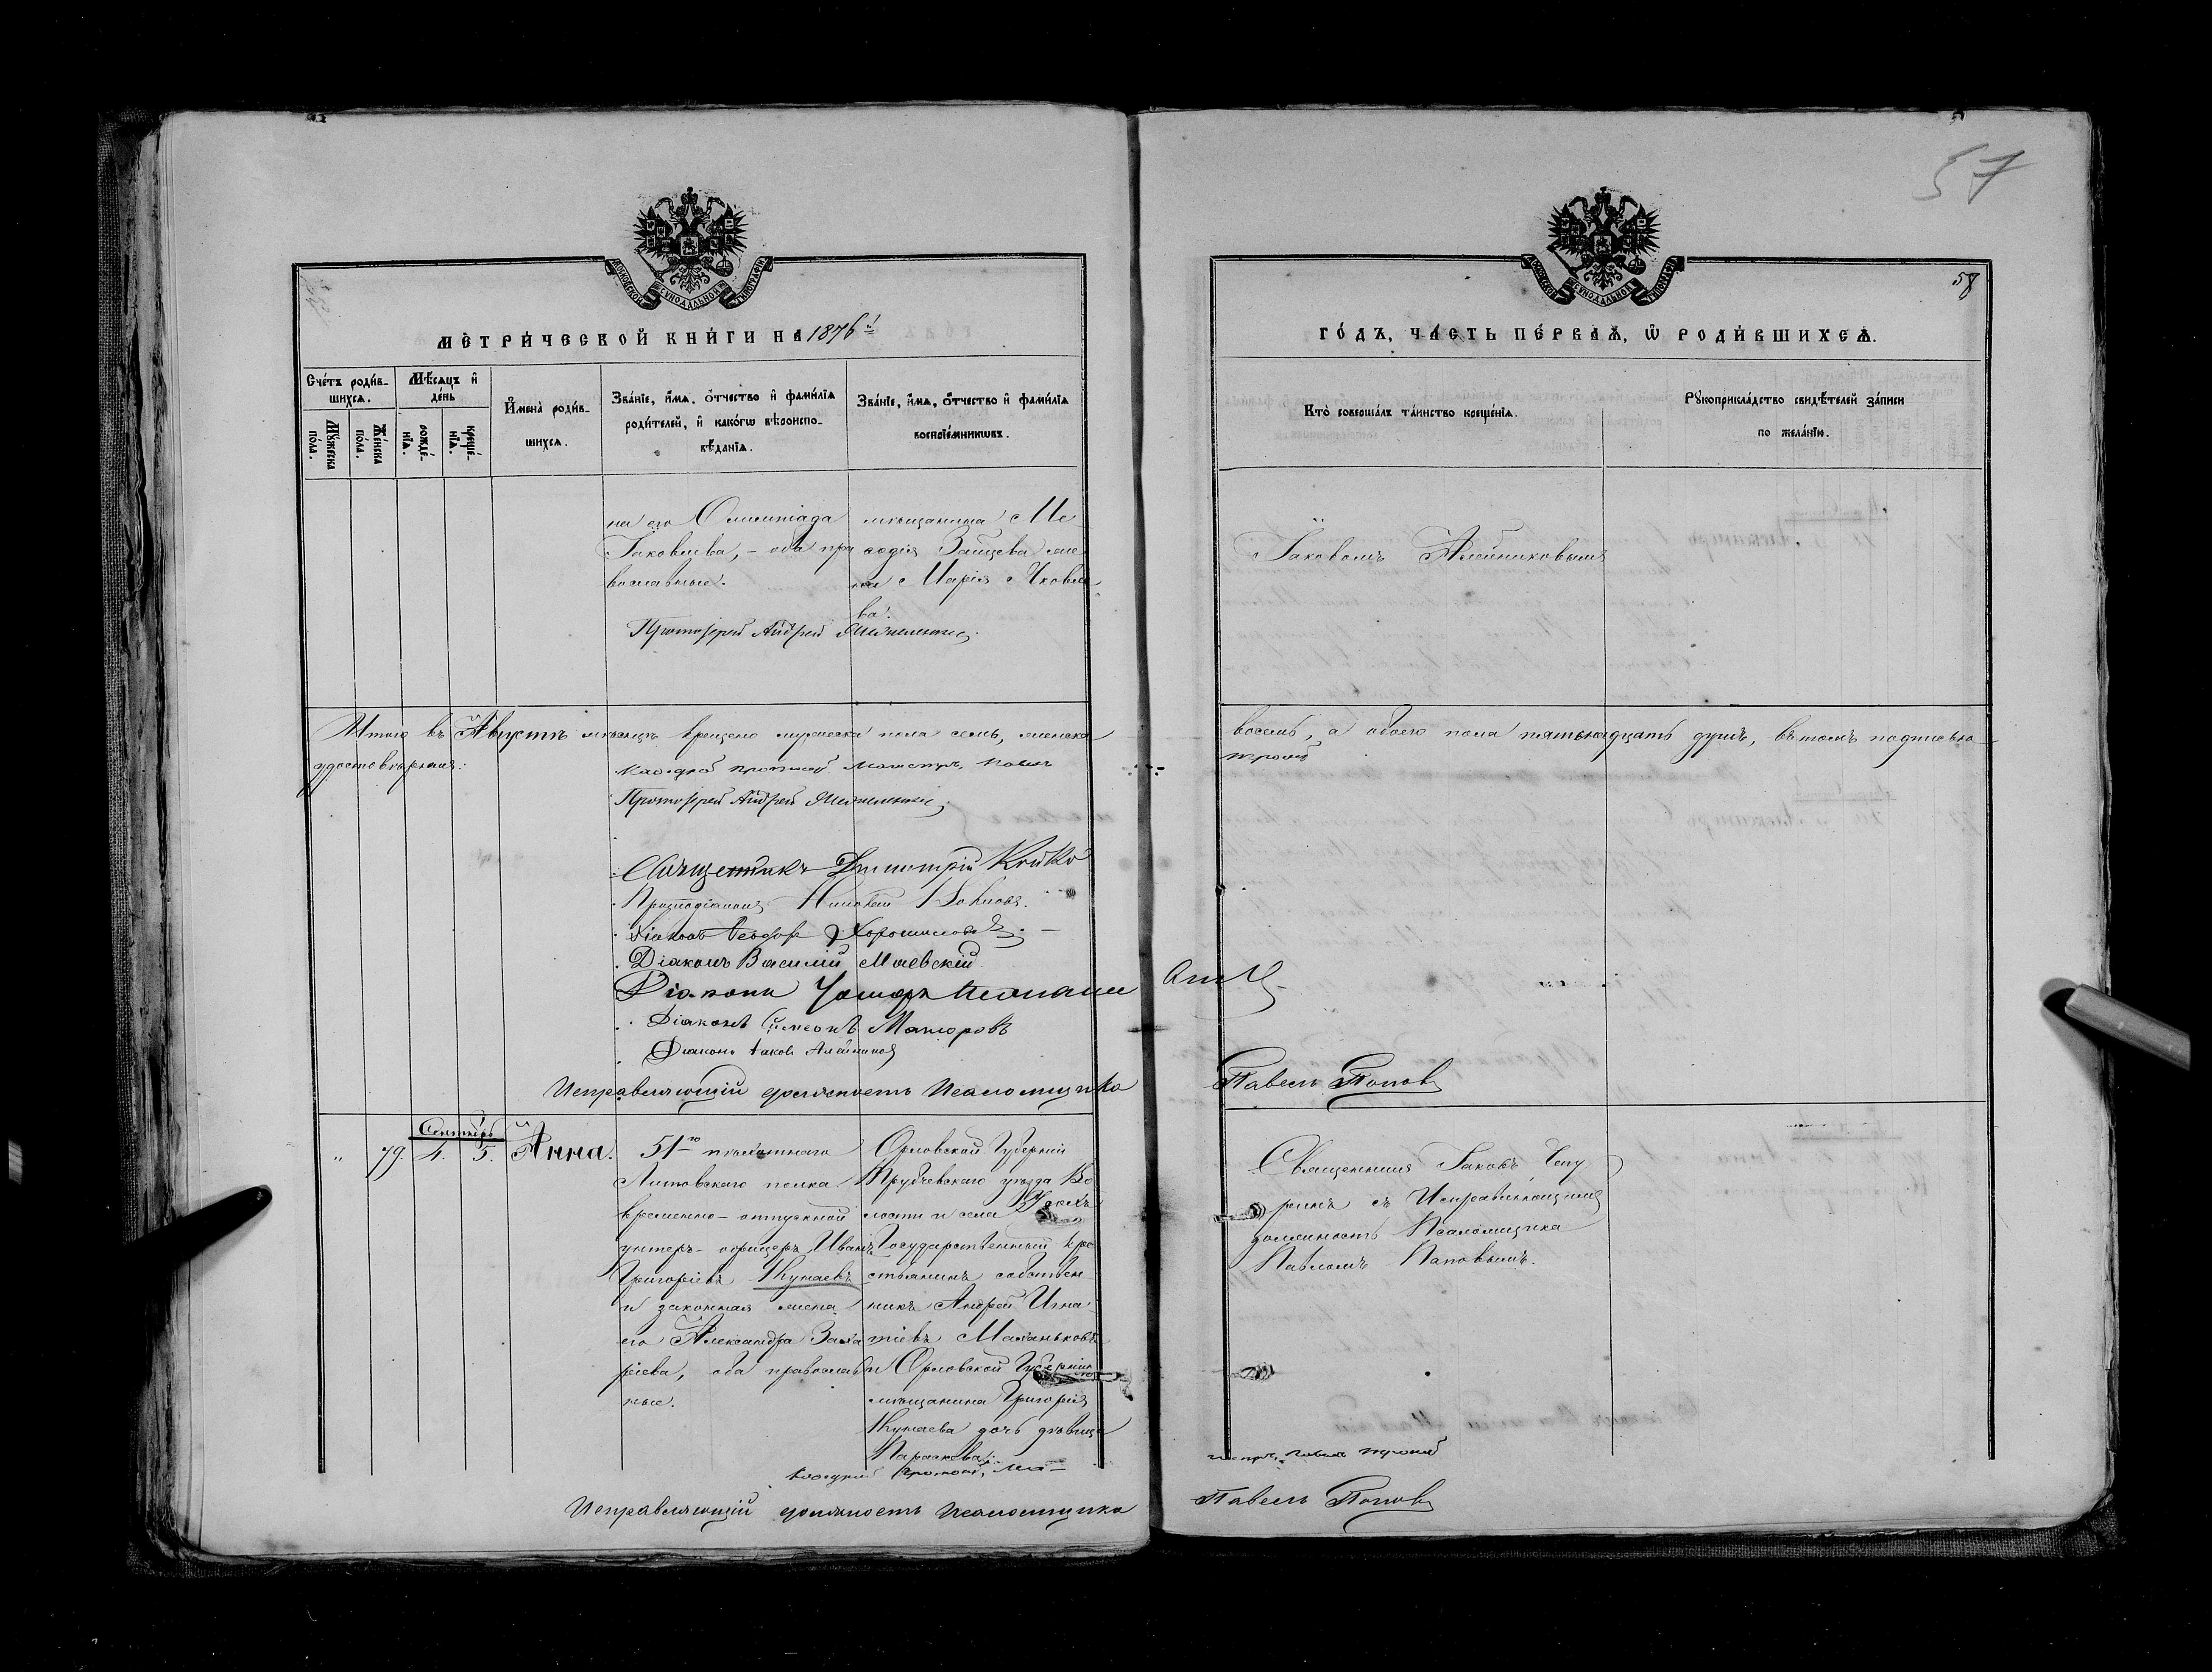 57
58
МОСКОВСКОЙ СУНОДАЛЬНОЙ ТИПОГРАФІИ
МОСКОВСКОЙ СУНОДАЛЬНОЙ ТИПОГРАФІИ
МЕТРИ́ЧЕСКОЙ КНИ́ГИ НА 1876й
ГО́ДЪ, ЧА́СТЬ ПЕ́РВАѦ, Ѡ҆ РОДИ́ВШИХСѦ.
Сче́тъ роди́вшихсѧ.
Мꙋ́жеска по́ла.
Же́нска по́ла.
Мѣ́сѧцъ и҆ де́нь
рожде́нїѧ.
креще́нїѧ.
И҆мена̀ роди́вшихсѧ.
Зва́нїе, и҆́мѧ, ѻ҆́тчество и҆ фами́лїѧ
роди́телей, и҆ како́гѡ вѣроисповѣ́данїѧ.
Зва́нїе, и҆́мѧ, ѻ҆́тчество и҆ фами́лїѧ
воспрїе́мникѡвъ.
Кто̀ соверша́лъ та́инство креще́нїѧ.
Рꙋкоприкла́дство свидѣ́телей за́писи
по жела́нїю.
на его Олимпіада
Іаковлева, - оба пра
вославные.
мѣщанина Ме
ѳодія Зайцева же
на Марія Яковле
ва.
Протоіерей Андрей
Іаковомъ Алейниковымъ
Итого въ Августѣ мѣсяцѣ крещено мужеска пола семь, женска
восемь, а обоего пола пятьнадцать душъ, въ томъ подписью
удостовѣряемъ:
Протоіерей Андрей
Священникъ Димитрій Койко
Протодіаконъ Николай
Діаконъ Ѳеодоръ Хорошиловъ
Діаконъ Василій Маевскій
Діаконъ
Діаконъ Симеонъ Маноровъ
Діаконъ Іаковъ Алейниковъ
Исправляющій должность Псаломщика Павелъ Поповъ
Сентябрь
" 79. 4. 5. Анна.
51го пѣхотнаго
Литовскаго полка
временно-отпускной
унтеръ-офицеръ Иванъ
Григоріевъ Кунаевъ
и законная жена
его Александра Заха
ріева, оба православ
ные.
Орловской Губерніи
Трубчевскаго уѣзда Во
лости и села
Государственный кре
стьянинъ собствен
никъ Андрей Игна
тіевъ Маханьковъ
и Орловской Губерніи
мѣщанина Григорія
Кунаева дочь дѣвица
Параскева.
Священникъ Іаковъ Чепу
ринъ съ Исправляющимъ
должность Псаломщика
Павломъ Поповымъ.
Исправляющій должность Псаломщика Павелъ Поповъ